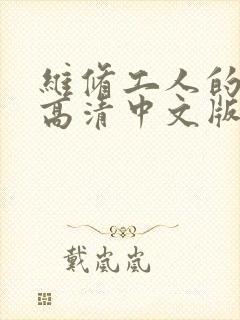 維脩工人的
高清中文版
戴嵐嵐